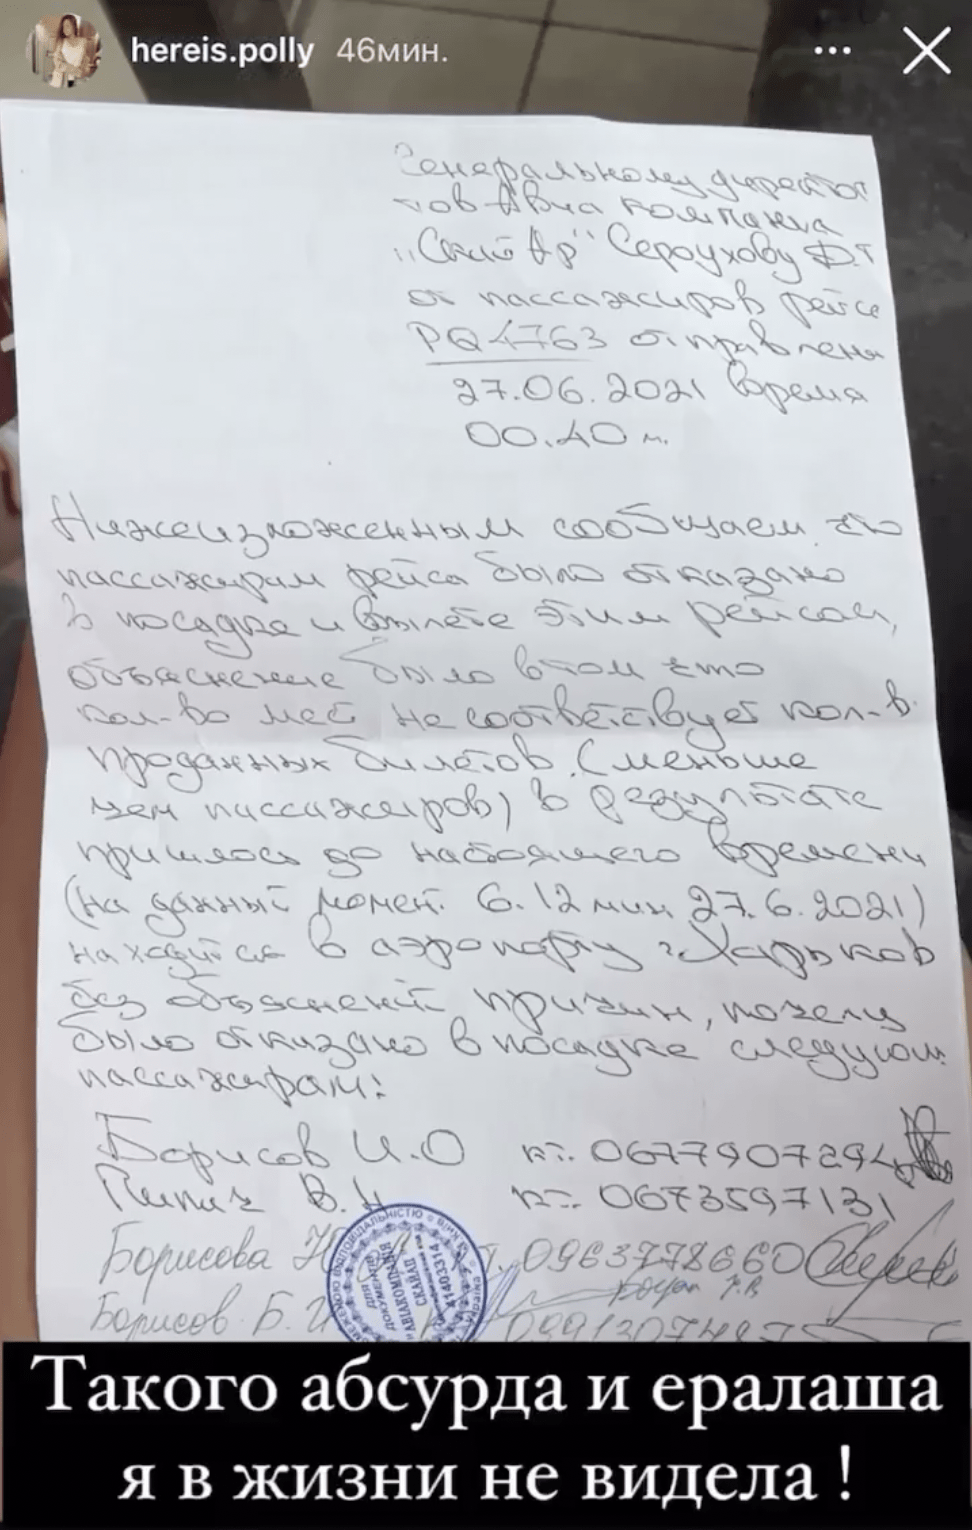 hereis.polly 46мин.
Генеральному директо
тов Авиа компания
"Скай Ар" Сероухову Д.
от пассажиров рейса
PQ 4763 отправлена
27.06.2021 время
00.40 м.
Нижеизложенным сообщаем что
пассажирам рейса было отказано
в посадке и вылете этим рейсом,
объяснение было в том что
кол-во мест не соответствует кол-в
проданных билетов. (меньше
чем пассажиров) в результате
пришлось до настоящего времени
(на данный момен. 6.12 мин 27.6.2021)
находится в аэропорту г. Харьков
без объяснений причин, почему
было отказано в посадке следующ
пассажирам:
Борисов И.О 0677907294
В.Н 0673597131
Борисова 0963778660
Борисов Б.
ДЛЯ ДОКУМЕНТІВ
АВІАКОМПАНІЯ
СКАЙАП
41403314
Такого абсурда и ералаша
я в жизни не видела !